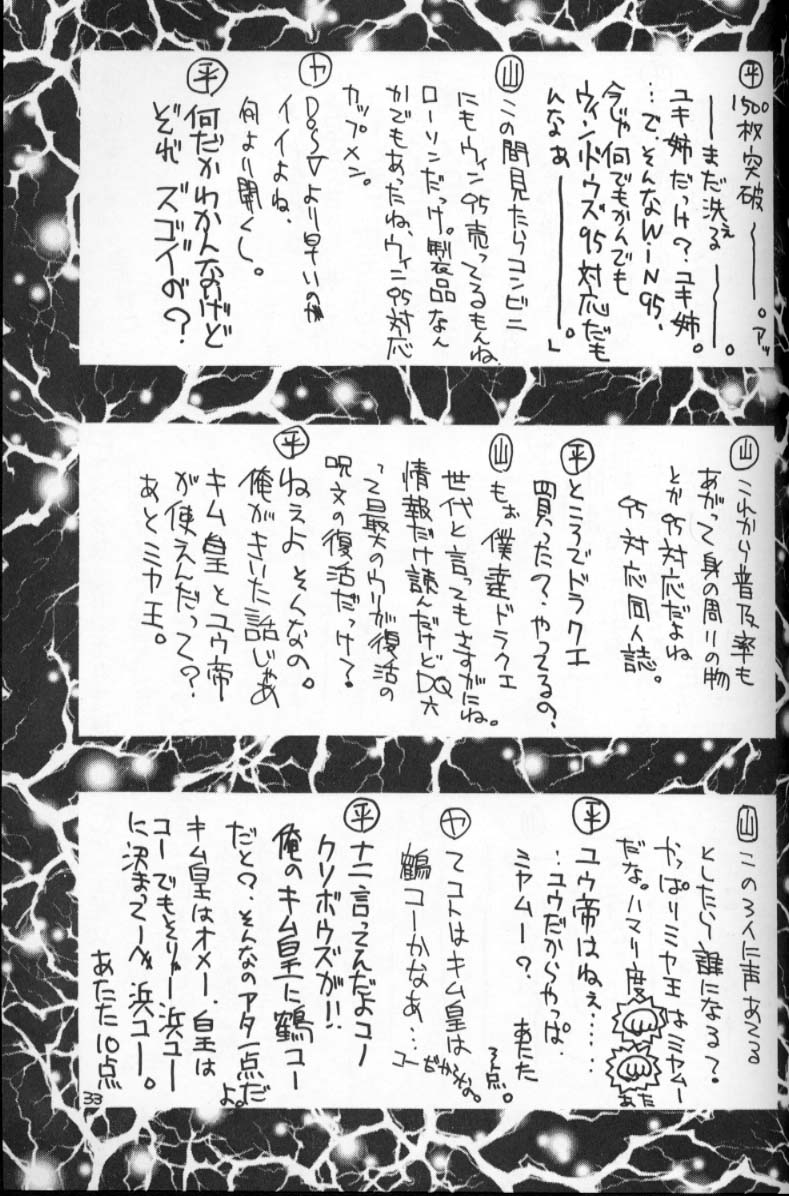 平 1500枚突破〜〜。アッ
――まだ洗ぇる――。
ユキ姉だっけ?ユキ姉。
…で、そんなWiN95、
今じゃ何でもかんでも
ウィンドウズ95対応だも
んなぁ―――。」
山 この間見たらコンビニ
にもウィン95売ってるもんね、
ローソンだっけ。製品なん
かでもあったね、ウィン95対応
カップメン。
ヤ DOS/Vより早いのが
イイよね、
何より開くし。
平 何だかわかんなげど
ぞれ ズゴイが?
山 これから普及率も
あがって身の周りの物
とか95対応だよね
95対応同人誌。
平 ところでドラクエ
買ったの?やってるの?
山 もぉ僕達ドラクエ
世代と言ってもさすがにね。
情報だけ読んだけどDQ六
って最大のウリが復活の
呪文の復活だっけ?
平 ねぇよ そんなの。
俺がきいた話じゃあ
キム皇とユウ帝
が使えんだって?
あとミヤ王。
山 この3人に声あてる
としたら誰になる?
やっぱりミヤ王はミヤムー
だな。ハマリ度
あた
平 ユウ帝はねぇ……
…ユウだからやっぱ
ミヤムー?
あたた
3点。
ヤ てコトはキム皇は
鶴コーかなあ…
コーだからね。
平 ナニ言ってんだよコノ
クソボウズが!!
俺のキム皇に鶴コー
だと?そんなのアタ一点だ
よ。
キム皇はオメー、皇は
コーでもそりゃー浜コー
に決まってーべ浜コー。
あたた10点
33